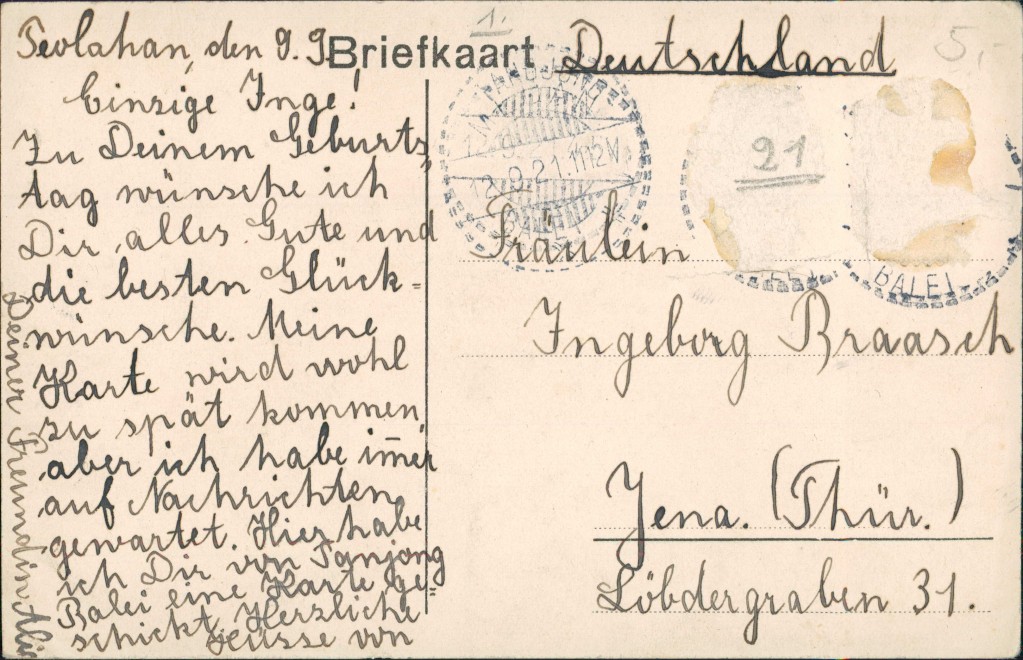 Teolahan, den 9. 9.
Einzige Inge!
Zu Deinem Geburts
tag wünsche ich
Dir alles Gute und
die besten Glück=
wünsche. Meine
Karte wird wohl
zu spät kommen,
aber ich habe im̄er
auf Nachrichten
gewartet. Hier habe
ich Dir von Tanjong
Balei eine Karte ge=
schickt. Herzliche
Küsse von
Deiner Freundin
Briefkaart
1.
Deutschland
5,-
21
12.9.21.11-12V
BALEI
Fräulein
Ingeborg Braasch
Jena. (Thür.)
Löbdergraben 31.